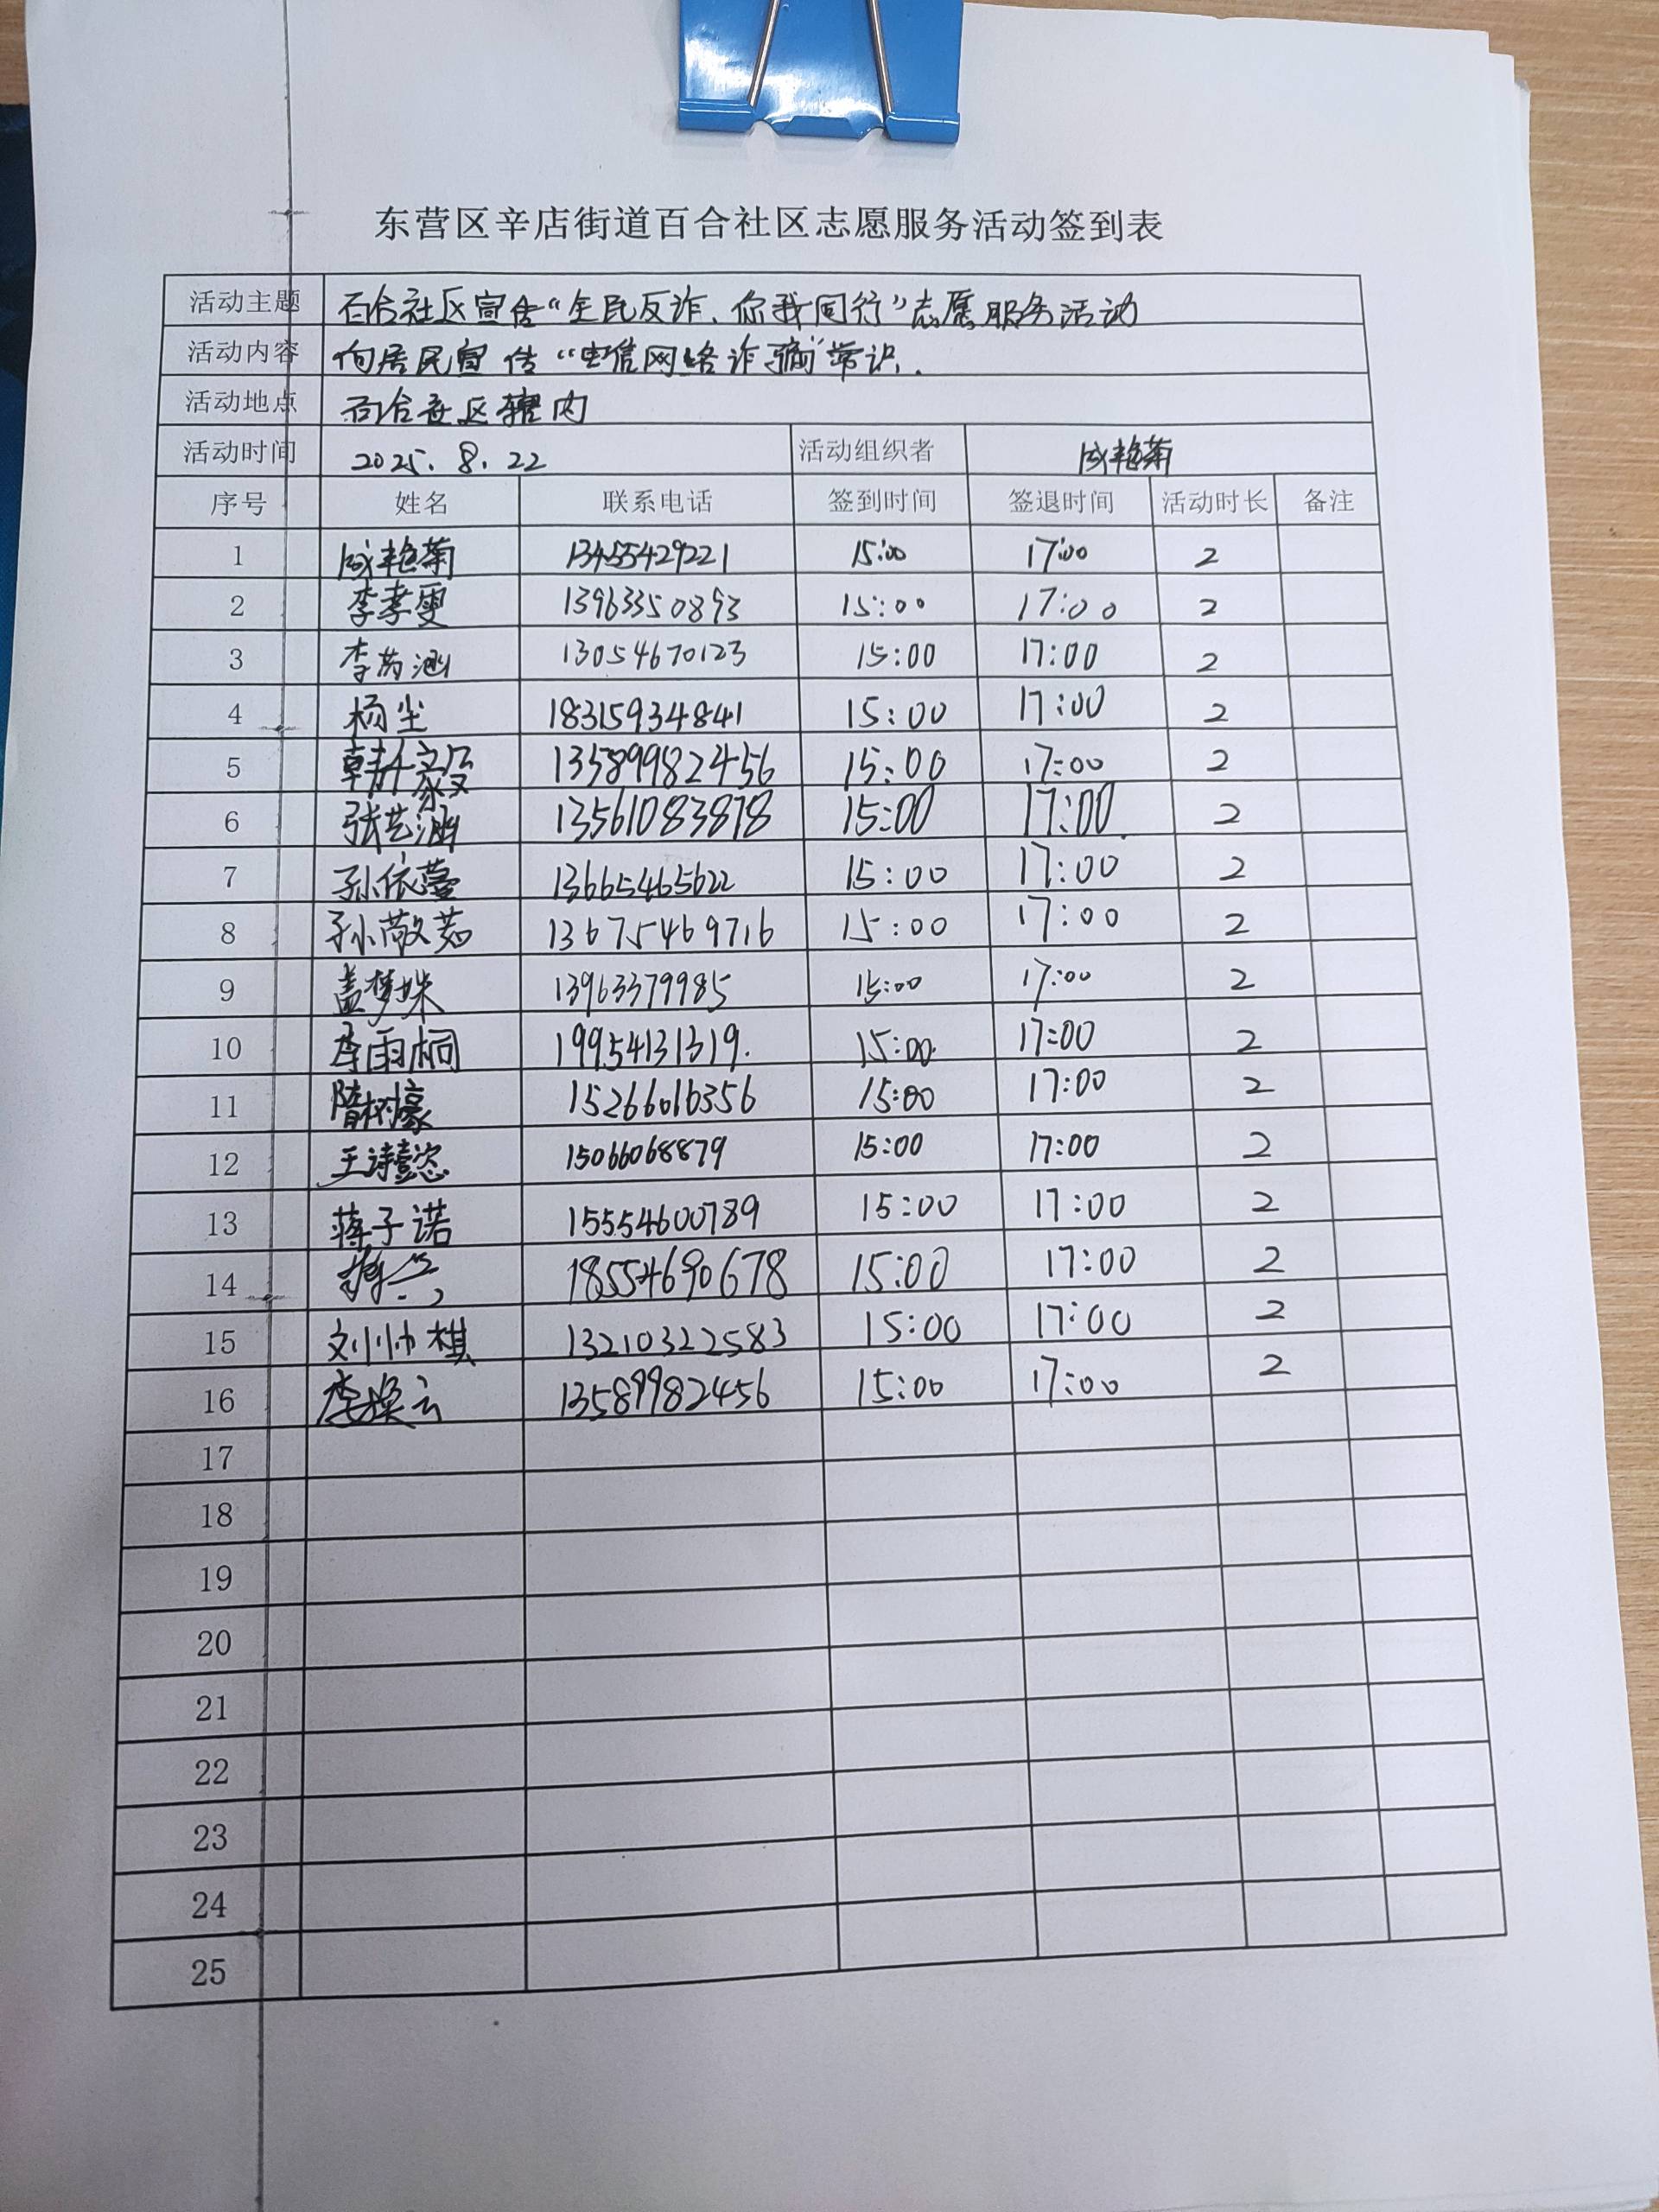 东营区辛店街道百合社区志愿服务活动签到表
活动主题 百合社区宣传“全民反诈、你我同行”志愿服务活动
活动内容 向居民宣传“电信网络诈骗”常识.
活动地点 百合社区辖内
活动时间 2025.8.22 活动组织者 成艳菊
序号 姓名 联系电话 签到时间 签退时间 活动时长 备注
1 成艳菊 13455429221 15:00 17:00 2
2 李孝雯 13963350893 15:00 17:00 2
3 李芮涵 13054670123 15:00 17:00 2
4 杨尘 18315934841 15:00 17:00 2
5 13589982456 15:00 17:00 2
6 张艺涵 13561083878 15:00 17:00 2
7 孙依蔓 13665465622 15:00 17:00 2
8 孙敬茹 13675469716 15:00 17:00 2
9 盖梦姝 13963379985 15:00 17:00 2
10 李雨桐 19954131319. 15:00 17:00 2
11 隋树豪 15266016356 15:00 17:00 2
12 王诗懿 15066068879 15:00 17:00 2
13 蒋子诺 15554600789 15:00 17:00 2
14 18554690678 15:00 17:00 2
15 刘帅棋 13210322583 15:00 17:00 2
16 李焕云 13589982456 15:00 17:00 2
17
18
19
20
21
22
23
24
25